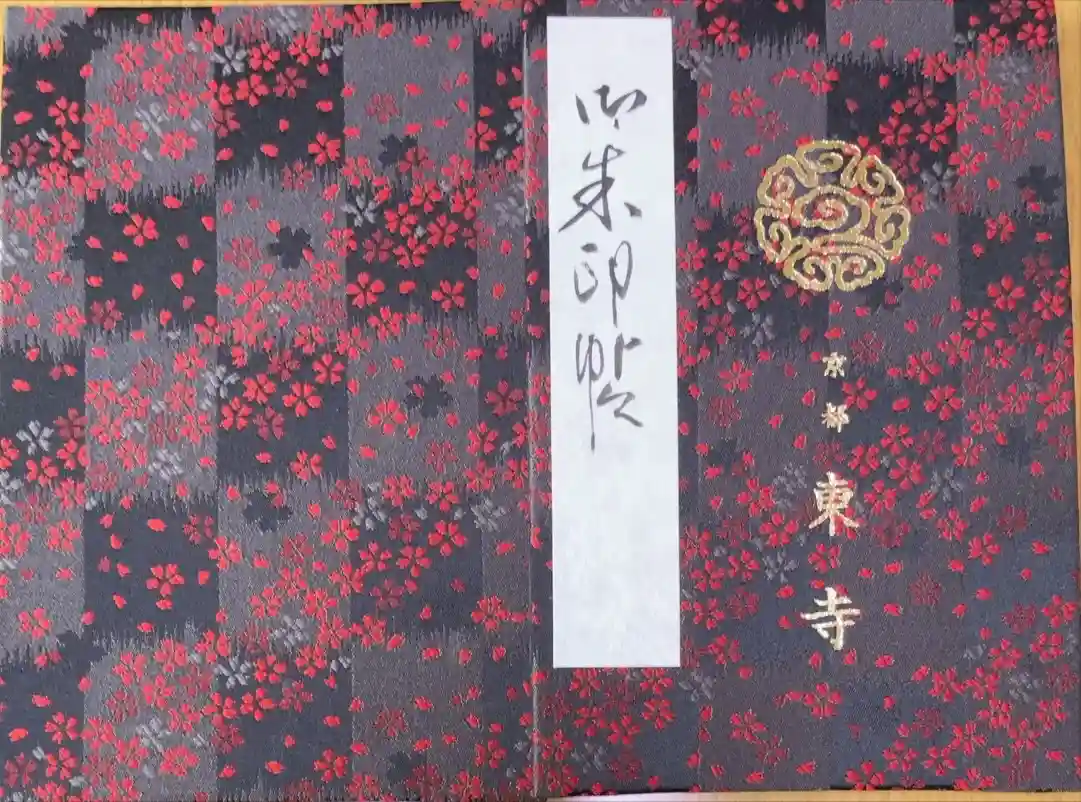 御朱印帳
京都
東寺